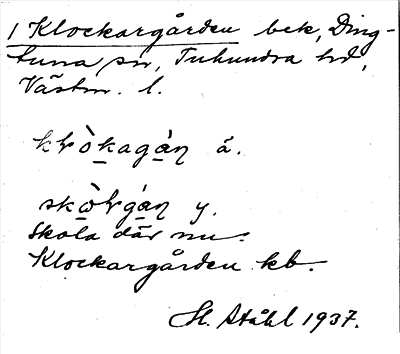 1 Klockargården bek, Ding-
tuna sn, Tuhundra hd,
Västm. l.
krò̱kagȧ̱ŋ ä.
skὼ̱lgȧ̱ŋ y.
Skola där nu.
Klockargården kb.
H. Ståhl 1937.